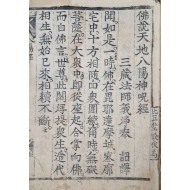 佛說天地八陽神呪經
三藏法師義淨奉 詔譯
聞如是一時佛在毘耶達摩城寥廓
宅中十方相隨四衆圍繞爾時無礙
菩薩在大衆中即從座起合掌向佛
而白佛言世尊此閻浮提衆生遞代
相生無始已來相續不斷